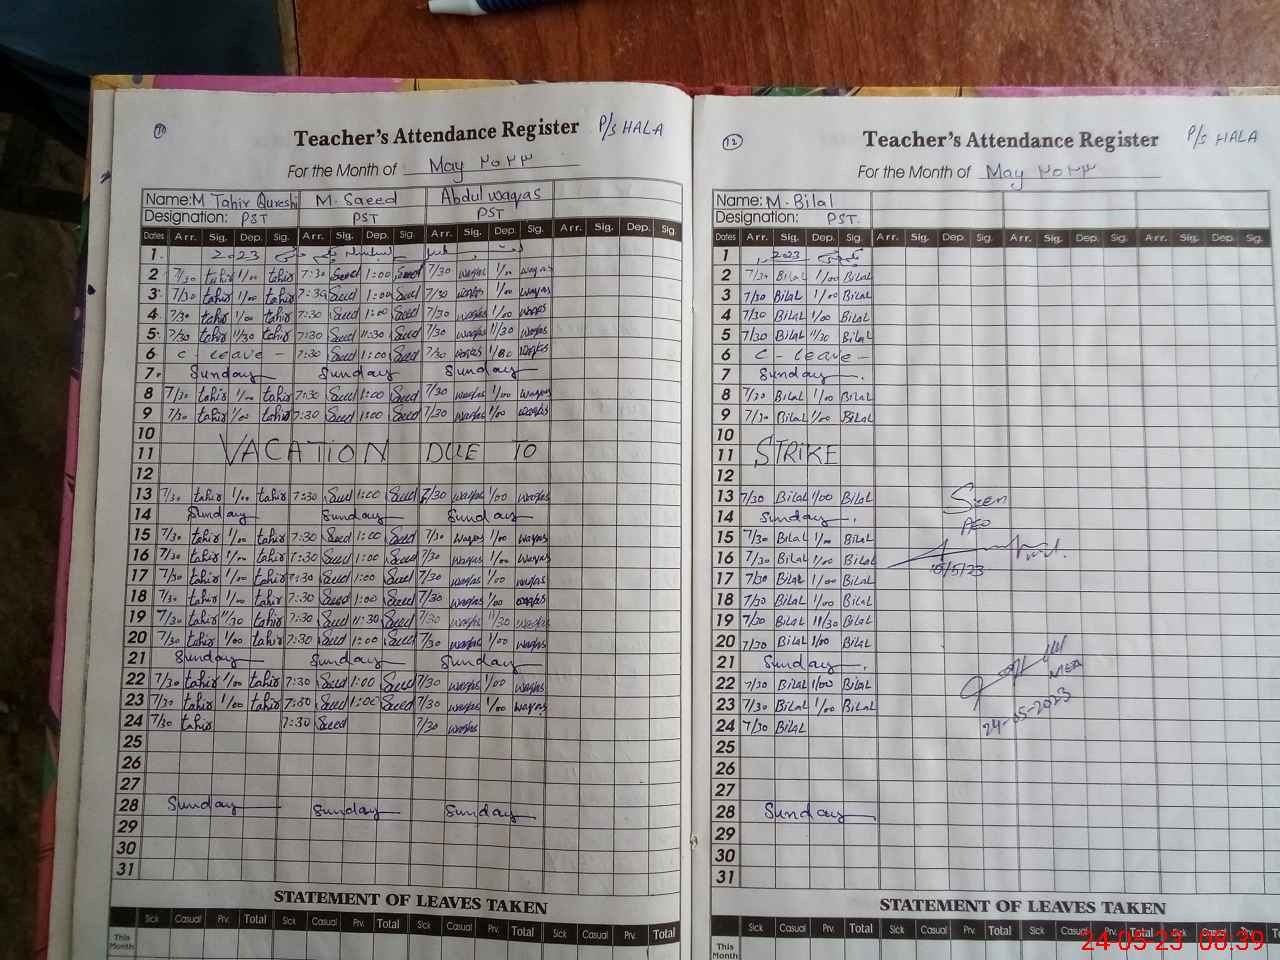 10 Teacher's Attendance Register P/s HALA
For the Month of May ٢٠٢٣
Name: M Tahir Qureshi M. Saeed Abdul waqas
Designation: PST PST PST
Dates Arr. Sig. Dep. Sig. Arr. Sig. Dep. Sig. Arr. Sig. Dep. Sig. Arr. Sig. Dep. Sig.
1 2023
2 7/30 tahir 1/00 tahir 7:30 Saeed 1:00 Saeed 7/30 waqas 1/00 waqas
3 7/30 tahir 1/00 tahir 7:30 Saeed 1:00 Saeed 7/30 waqas 1/00 waqas
4 7/30 tahir 1/00 tahir 7:30 Saeed 1:00 Saeed 7/30 waqas 1/00 waqas
5 7/30 tahir 11/30 tahir 7:30 Saeed 11:30 Saeed 7/30 waqas 11/30 waqas
6 C - Leave - 7:30 Saeed 1:00 Saeed 7/30 waqas 1/00 waqas
7 Sunday Sunday Sunday
8 7/30 tahir 1/00 tahir 7:30 Saeed 1:00 Saeed 7/30 waqas 1/00 waqas
9 7/30 tahir 1/00 tahir 7:30 Saeed 1:00 Saeed 7/30 waqas 1/00 waqas
10
11 VACATION DUE TO
12
13 7/30 tahir 1/00 tahir 7:30 Saeed 1:00 Saeed 7/30 waqas 1/00 waqas
14 Sunday Sunday Sunday
15 7/30 tahir 1/00 tahir 7:30 Saeed 1:00 Saeed 7/30 waqas 1/00 waqas
16 7/30 tahir 1/00 tahir 7:30 Saeed 1:00 Saeed 7/30 waqas 1/00 waqas
17 7/30 tahir 1/00 tahir 7:30 Saeed 1:00 Saeed 7/30 waqas 1/00 waqas
18 7/30 tahir 1/00 tahir 7:30 Saeed 1:00 Saeed 7/30 waqas 1/00 waqas
19 7/30 tahir 11/30 tahir 7:30 Saeed 11:30 Saeed 7/30 waqas 11/30 waqas
20 7/30 tahir 1/00 tahir 7:30 Saeed 1:00 Saeed 7/30 waqas 1/00 waqas
21 Sunday Sunday Sunday
22 7/30 tahir 1/00 tahir 7:30 Saeed 1:00 Saeed 7/30 waqas 1/00 waqas
23 7/30 tahir 1/00 tahir 7:30 Saeed 1:00 Saeed 7/30 waqas 1/00 waqas
24 7/30 tahir 7:30 Saeed 7/30 waqas
25
26
27
28 Sunday Sunday Sunday
29
30
31
STATEMENT OF LEAVES TAKEN
Sick Casual Prv. Total Sick Casual Prv. Total Sick Casual Prv. Total Sick Casual Prv. Total
This Month
12 Teacher's Attendance Register P/s HALA
For the Month of May ٢٠٢٣
Name: M. Bilal
Designation: PST.
Dates Arr. Sig. Dep. Sig. Arr. Sig. Dep. Sig. Arr. Sig. Dep. Sig. Arr. Sig. Dep. Sig.
1 2023
2 7/30 Bilal 1/00 Bilal
3 7/30 Bilal 1/00 Bilal
4 7/30 Bilal 1/00 Bilal
5 7/30 Bilal 11/30 Bilal
6 C - Leave -
7 Sunday
8 7/30 Bilal 1/00 Bilal
9 7/30 Bilal 1/00 Bilal
10
11 STRIKE
12
13 7/30 Bilal 1/00 Bilal Seen
14 Sunday
15 7/30 Bilal 1/00 Bilal
16 7/30 Bilal 1/00 Bilal
17 7/30 Bilal 1/00 Bilal
18 7/30 Bilal 1/00 Bilal
19 7/30 Bilal 11/30 Bilal
20 7/30 Bilal 1/00 Bilal
21 Sunday
22 7/30 Bilal 1/00 Bilal MEA
23 7/30 Bilal 1/00 Bilal
24 7/30 Bilal 24-05-2023
25
26
27
28 Sunday
29
30
31
STATEMENT OF LEAVES TAKEN
Sick Casual Prv. Total Sick Casual Prv. Total Sick Casual Prv. Total Sick Casual Prv.
This Month
24-05-23 08:39